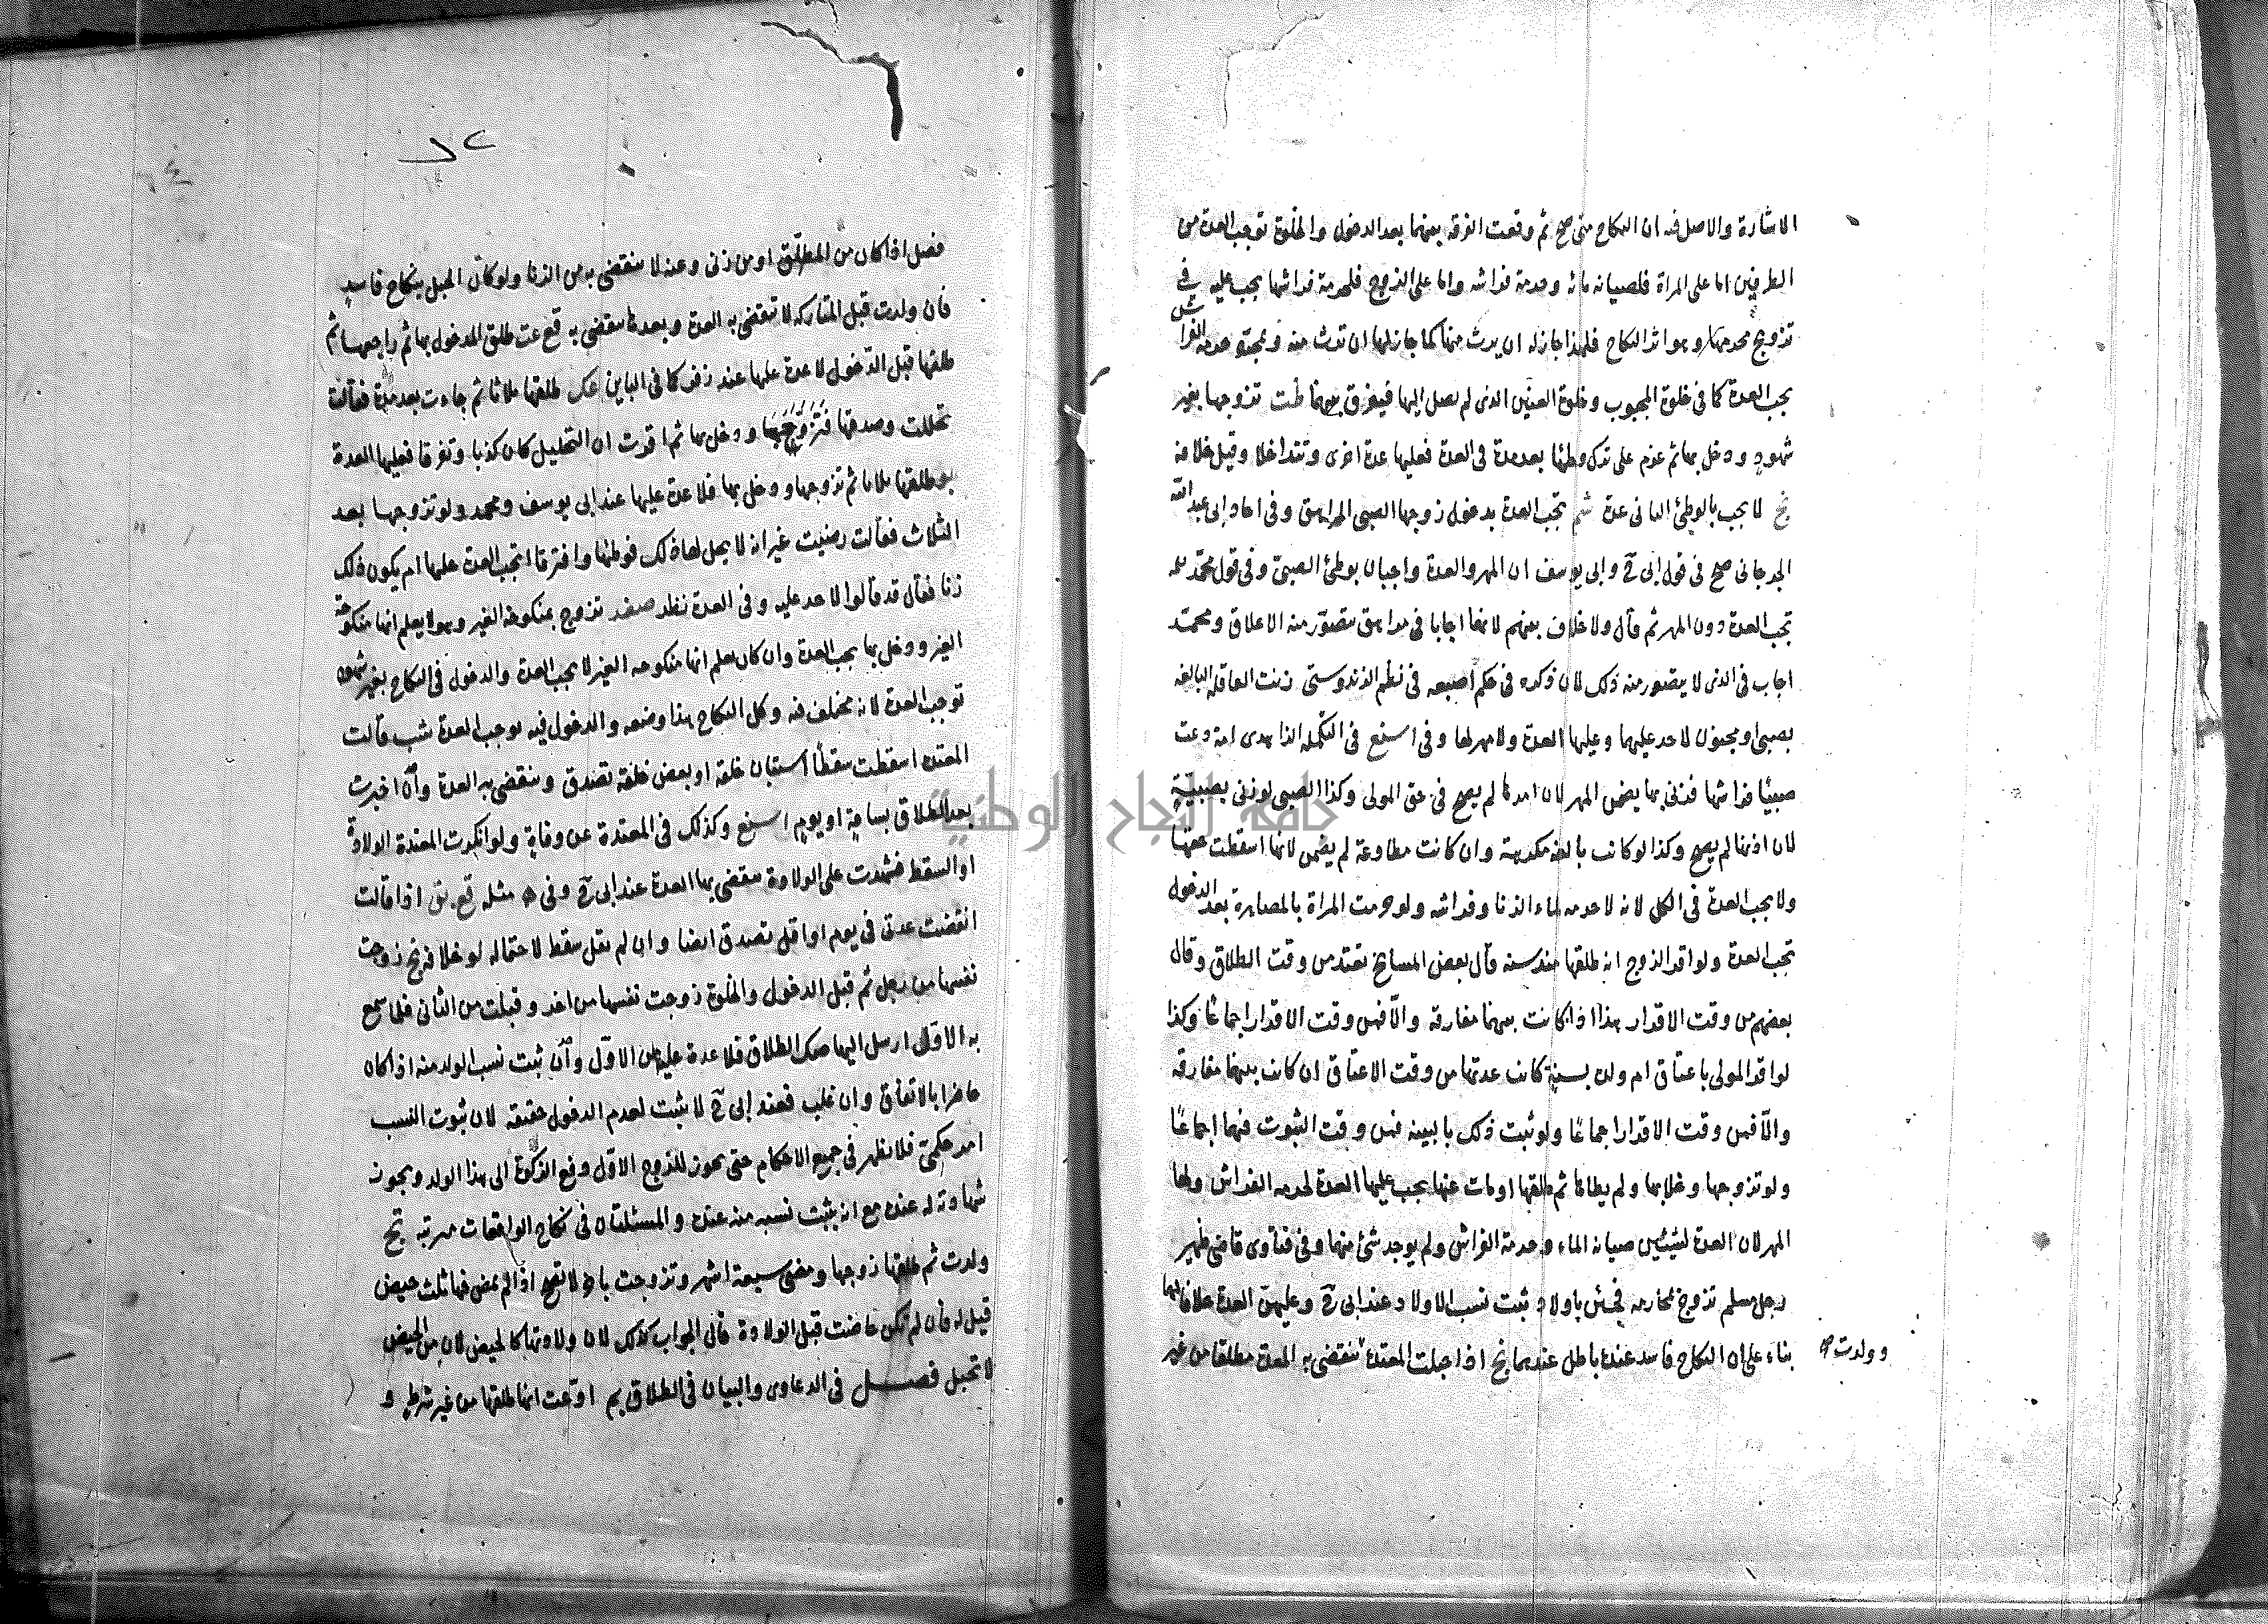 الاشارة والاصل فيه ان النكاح متى صح ثم وقعت الفرقة بينهما بعد الدخول والخلوة توجب العدة من
الطرفين اما على المراة فلصيانة مائه وحرمة فراشه واما على الزوج فلحرمة فراشها يجب عليه في
تزوج محرمها وهو اثر النكاح فلهذا جاز له ان يرث منها كما جاز لها ان ترث منه وبمجرد حرمة الفراش
يجب العدة كما في خلوة المجبوب وخلوة العنين الذى لم يصل اليها فيفرق بينهما تزوجها بغير
شهود ودخل بها ثم عزم على ترك وطئها بعد مدة في العدة فعليها عدة اخرى وتتداخلا وقيل خلافه
لا يجب بالوطئ الثانى عدة شم تجب العدة بدخول زوجها الصبى المراهق وفى ابى عبد الله
الجرجانى صح فى قول ابى ح وابى يوسف ان المهر والعدة واجبان بوطئ الصبى وفى قول محمد
تجب العدة دون المهر ثم قال ولا خلاف بينهم لانهما اجابا فى مراهق يتصور منه الاعلاق ومحمد
اجاب فى الذى لا يتصور منه ذلك لان ذكره فى حكم اصبعه فى نظم الزندوستى زنت العاقلة البالغة
بصبى او مجنون لا حد عليهما وعليها العدة ولا مهر لها وفى فى التكملة اذا امة دعت
صبيا فزنى بها يضمن المهر لان امرها لم يصح فى حق المولى وكذا الصبى لو زنى بصبية
لان اذنها لم يصح وكذا لو كانت بالغة مكرهة وان كانت مطاوعة لم يضمن لانها اسقطت حقها
ولا يجب العدة فى الكل لانه لا حرمة لماء الزنا وفراشه ولو حرمت المراة بالمصاهرة بعد الدخول
تجب العدة ولو اقر الزوج انه طلقها منذ سنة قال بعض المشايخ تعتد من وقت الطلاق وقال
بعضهم من وقت الاقرار هذا اذا كانت بينهما مفارقة والا فمن وقت الاقرار اجماعا وكذا
لو اقر المولى باعتاق ام ولده بسنة كانت عدتها من وقت الاعتاق ان كانت بينهما مفارقة
والا فمن وقت الاقرار اجماعا ولو ثبت ذلك بالبينة فمن وقت الثبوت فيهما اجماعا
ولو تزوجها وخلا بها ولم يطاها ثم طلقها او مات عنها يجب عليها العدة لحرمة الفراش ولها
المهر لان العدة لشيئين صيانة الماء وحرمة الفراش ولم يوجد شئ منهما وفى فتاوى قاضى ظهير
رجل مسلم تزوج محارمه فجئن باولاد ثبت نسب الاولاد عند ابى ح وعليهن العدة خلافا لهما
بناء على ان النكاح فاسد عنده باطل عندهما نج اذا حبلت المعتدة تنقضى به العدة مطلقا من غير
وولدت صح
فصل اذا كان من المطلق او من زنى وعنه لا تنقضى به من الزنا ولو كان الحبل بنكاح فاسد
فان ولدت قبل المتاركة لا تنقضى به العدة وبعدها تنقضى به قع عت طلق المدخول بها ثم راجعها ثم
طلقها قبل الدخول لا عدة عليها عند زفر كما فى الباين عك طلقها ثلاثا ثم جاءت بعد مدة فقالت
تحللت وصدقها فتزوجها ودخل بها ثم اقرت ان التحليل كان كذبا وتفرقا فعليها العدة
بو طلقها ثلاثا ثم تزوجها ودخل بها فلا عدة عليها عند ابى يوسف ومحمد ولو تزوجها بعد
الثلاث فقالت رضيت غير انه لا يحل لها ذلك فوطئها وافترقا اتجب العدة عليها ام يكون ذلك
زنا فقال قد قالوا لا حد عليه وفى العدة نظر صغر تزوج بمنكوحة الغير وهو لا يعلم انها منكوحة
الغير ودخل بها يجب العدة وان كان يعلم انها منكوحة الغير لا يجب العدة والدخول فى النكاح بغير شهود
توجب العدة لانه مختلف فيه وكل النكاح هذا وضعه والدخول فيه يوجب العدة شب قالت
المعتدة اسقطت سقطا استبان خلقه او بعض خلقه تصدق وتنقضى به العدة وان اخبرت
بعد الطلاق بساعة او يوم وكذلك فى المعتدة عن وفاة ولو انكرت المعتدة الولادة
او السقط فشهدت على الولادة تنقضى بها العدة عند ابى ح وفى مثله قع بق اذا قالت
انقضت عدتى فى يوم او اقل تصدق ايضا وان لم تقل سقط لاحتماله لو خلافه نج زوجت
نفسها من رجل ثم قبل الدخول والخلوة زوجت نفسها من اخر وقبلت من الثانى فلما سمع
به الاول ارسل اليها صك الطلاق فلا عدة عليها من الاول وان ثبت نسب الولد منه اذا كان
حاضرا بالاتفاق وان غاب فعند ابى ح لا يثبت لعدم الدخول حقيقة لان ثبوت النسب
امر حكمى فلا يظهر فى جميع الاحكام حتى يجوز للزوج الاول دفع الزكوة الى هذا الولد ويجوز
شهادته له عنده مع انه يثبت نسبه منه عنده والمسئلتان فى نكاح الواقعات مرتبة نج
ولدت ثم طلقها زوجها ومضى سبعة اشهر وتزوجت باخر لا يصح اذا لم تحض فيها ثلث حيض
قيل له فان لم تكن حاضت قبل الولادة قال الجواب كذلك لان ولادتها كالحيض لان من لا تحيض
لا تحبل فصل فى الدعاوى والبيان فى الطلاق بم ادعت انها طلقها من غير شرط و